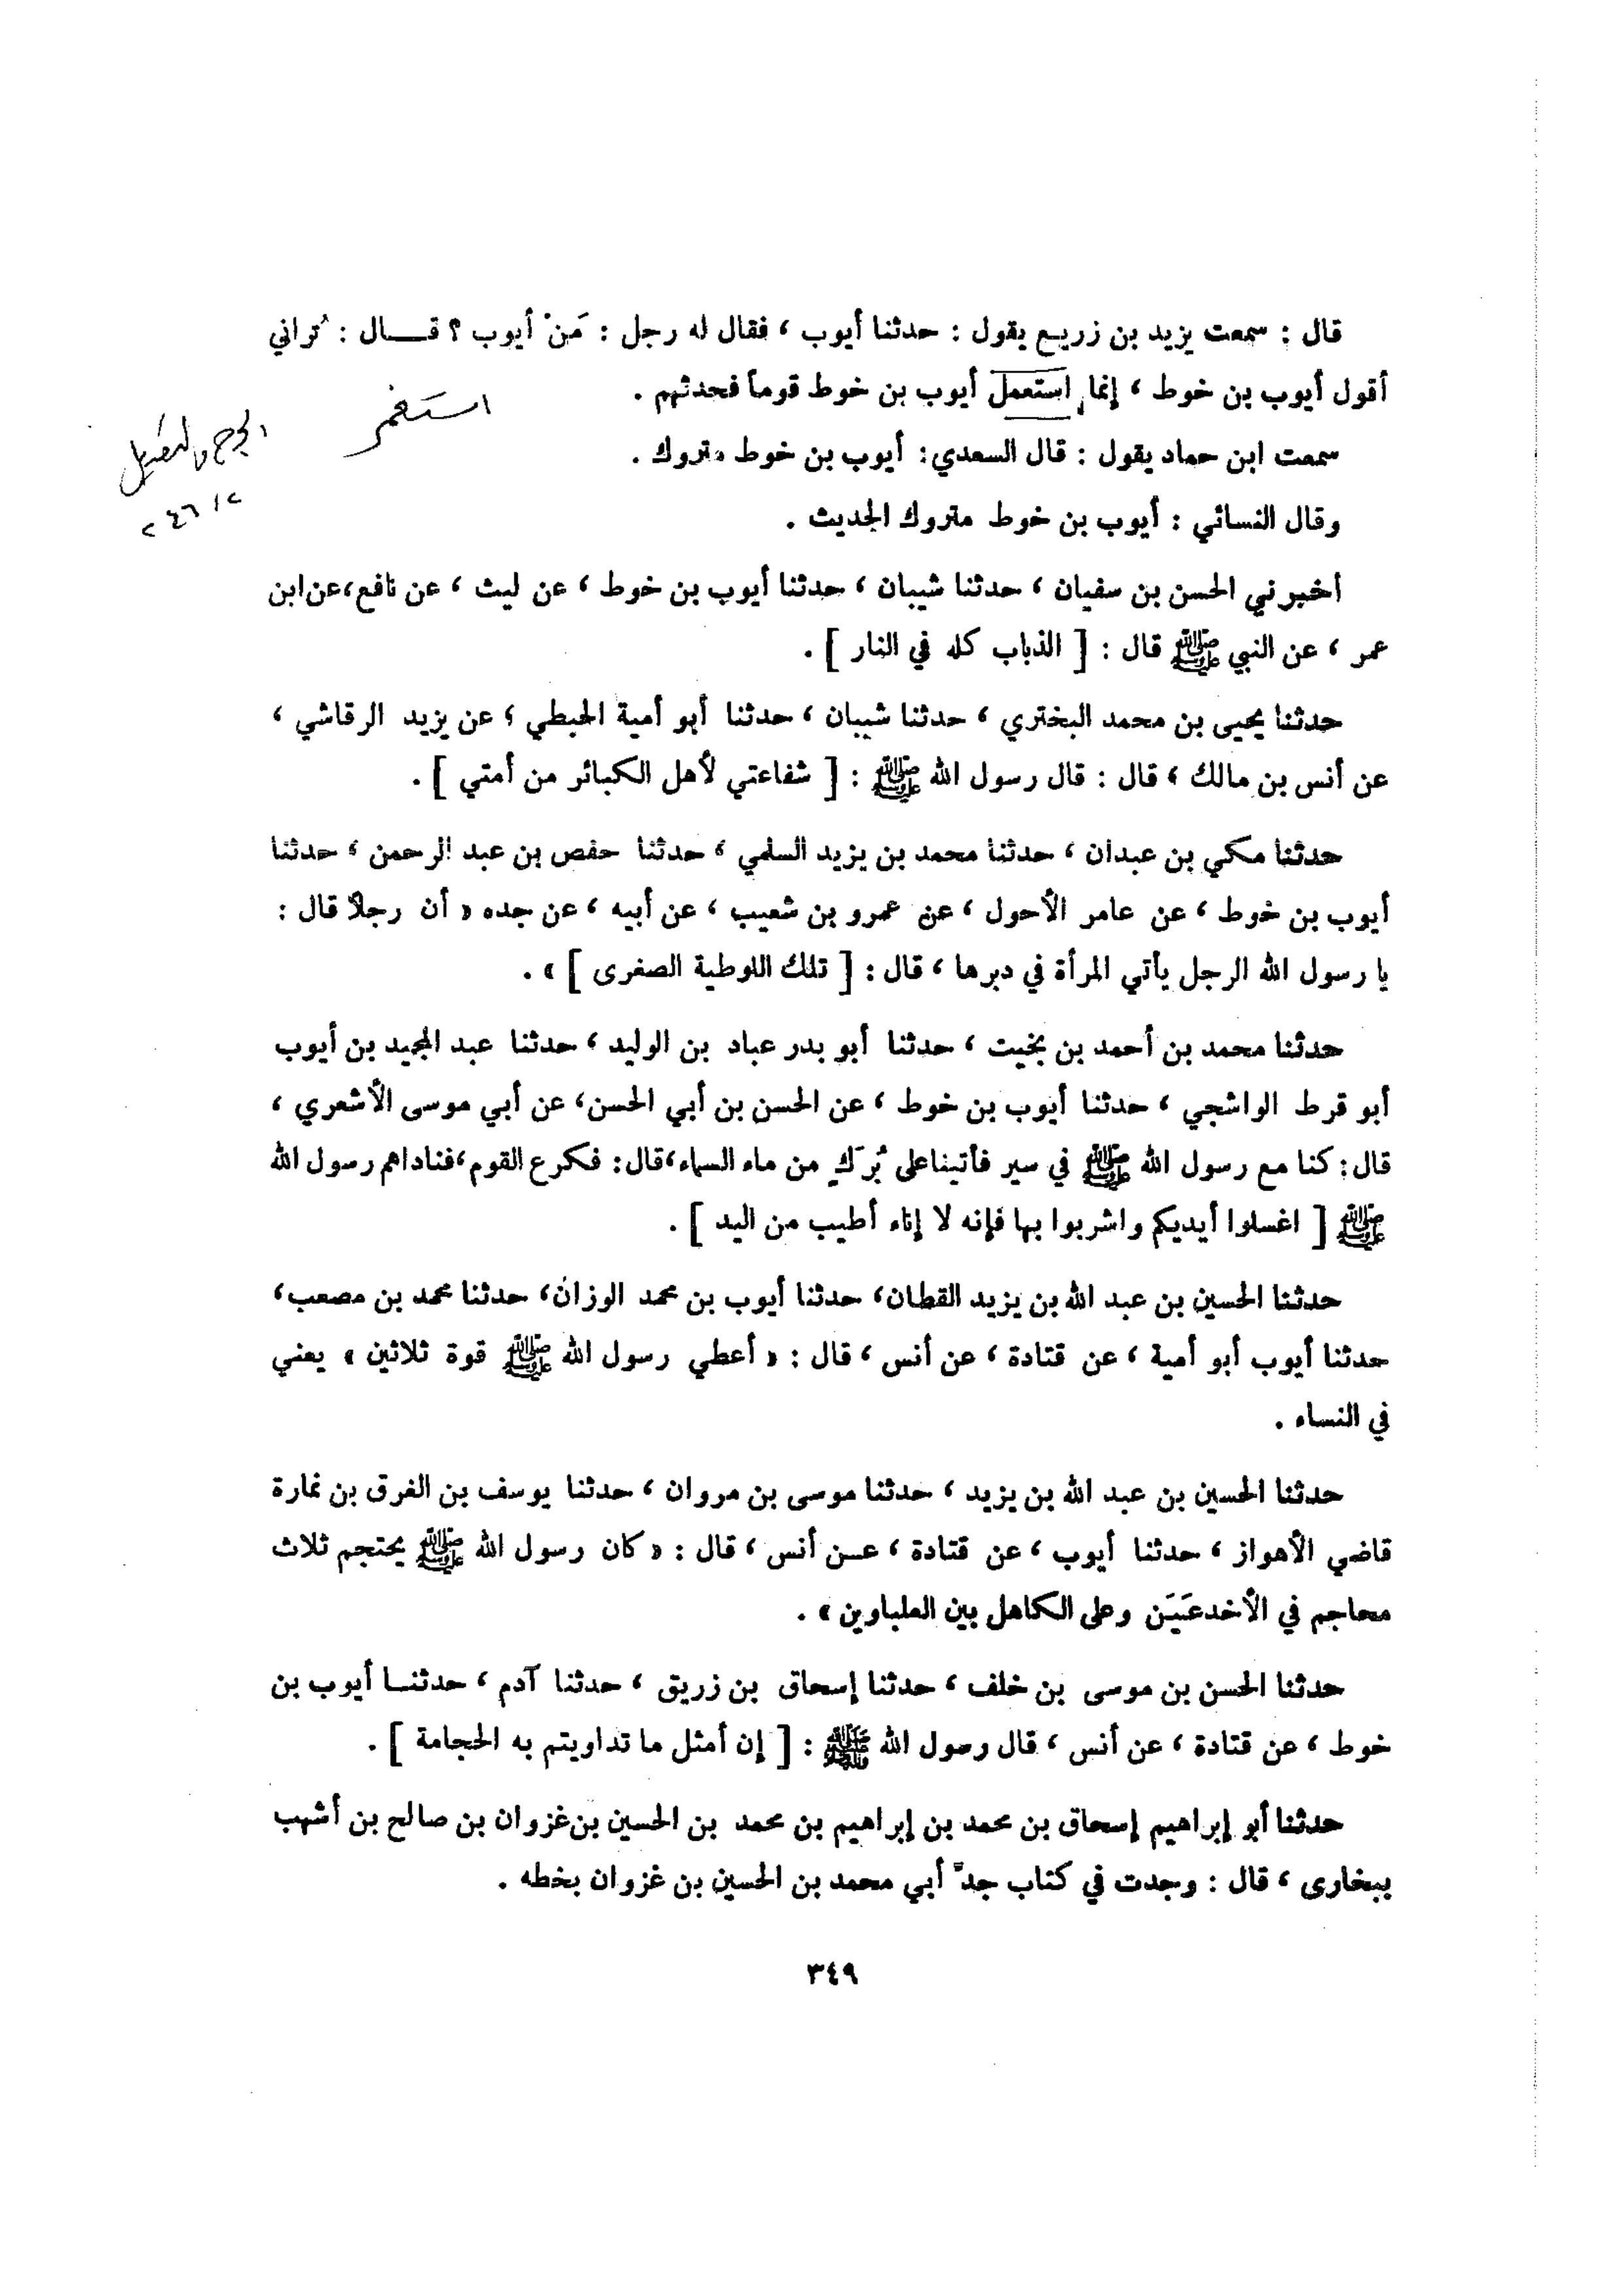 قال : سمعت يزيد بن زريـع يقول : حدثنا أيوب ، فقال له رجل : مَنْ أيوب ؟ قـــال : تُراني
أقول أيوب بن خوط ، إنما استعمل أيوب بن خوط قوماً فحدثهم .
استغمر
الجرح والتعديل
٢ / ٢٤٦
سمعت ابن حماد يقول : قال السعدي : أيوب بن خوط متروك .
وقال النسائي : أيوب بن خوط متروك الحديث .
أخبرني الحسن بن سفيان ، حدثنا شيبان ، حدثنا أيوب بن خوط ، عن ليث ، عن نافع ، عن ابن
عمر ، عن النبي ﷺ قال : [ الذباب كله في النار ] .
حدثنا يحيى بن محمد البختري ، حدثنا شيبان ، حدثنا أبو أمية الحبطي ؛ عن يزيد الرقاشي ،
عن أنس بن مالك ، قال : قال رسول الله ﷺ : [ شفاعتي لأهل الكبائر من أمتي ] .
حدثنا مكي بن عبدان ، حدثنا محمد بن يزيد السلمي ، حدثنا حفص بن عبد الرحمن ، حدثنا
أيوب بن خوط ، عن عامر الأحول ، عن عمرو بن شعيب ، عن أبيه ، عن جده « أن رجلاً قال :
يا رسول الله الرجل يأتي المرأة في دبرها ، قال : [ تلك اللوطية الصغرى ] » .
حدثنا محمد بن أحمد بن بخيت ، حدثنا أبو بدر عباد بن الوليد ، حدثنا عبد المجيد بن أيوب
أبو قرط الواشجي ، حدثنا أيوب بن خوط ، عن الحسن بن أبي الحسن ، عن أبي موسى الأشعري ،
قال : كنا مع رسول الله ﷺ في سير فأتينا على بُرَكٍ من ماء السماء ، قال : فكرع القوم ، فناداهم رسول الله
ﷺ [ اغسلوا أيديكم واشربوا بها فإنه لا إناء أطيب من اليد ] .
حدثنا الحسين بن عبد الله بن يزيد القطان ، حدثنا أيوب بن محمد الوزان ، حدثنا محمد بن مصعب ،
حدثنا أيوب أبو أمية ، عن قتادة ، عن أنس ، قال : « أعطي رسول الله ﷺ قوة ثلاثين » يعني
في النساء .
حدثنا الحسين بن عبد الله بن يزيد ، حدثنا موسى بن مروان ، حدثنا يوسف بن الغرق بن نمارة
قاضي الأهواز ، حدثنا أيوب ، عن قتادة ، عـن أنس ، قال : « كان رسول الله ﷺ يحتجم ثلاث
محاجم في الأخدعَيَن وعلى الكاهل بين العلباوين » .
حدثنا الحسن بن موسى بن خلف ، حدثنا إسحاق بن زريق ، حدثنا آدم ، حدثنـا أيوب بن
خوط ، عن قتادة ، عن أنس ، قال رسول الله ﷺ : [ إن أمثل ما تداويتم به الحجامة ] .
حدثنا أبو إبراهيم إسحاق بن محمد بن إبراهيم بن محمد بن الحسين بن غزوان بن صالح بن أشهب
ببخارى ، قال : وجدت في كتاب جدّ أبي محمد بن الحسين بن غزوان بخطه .
٣٤٩